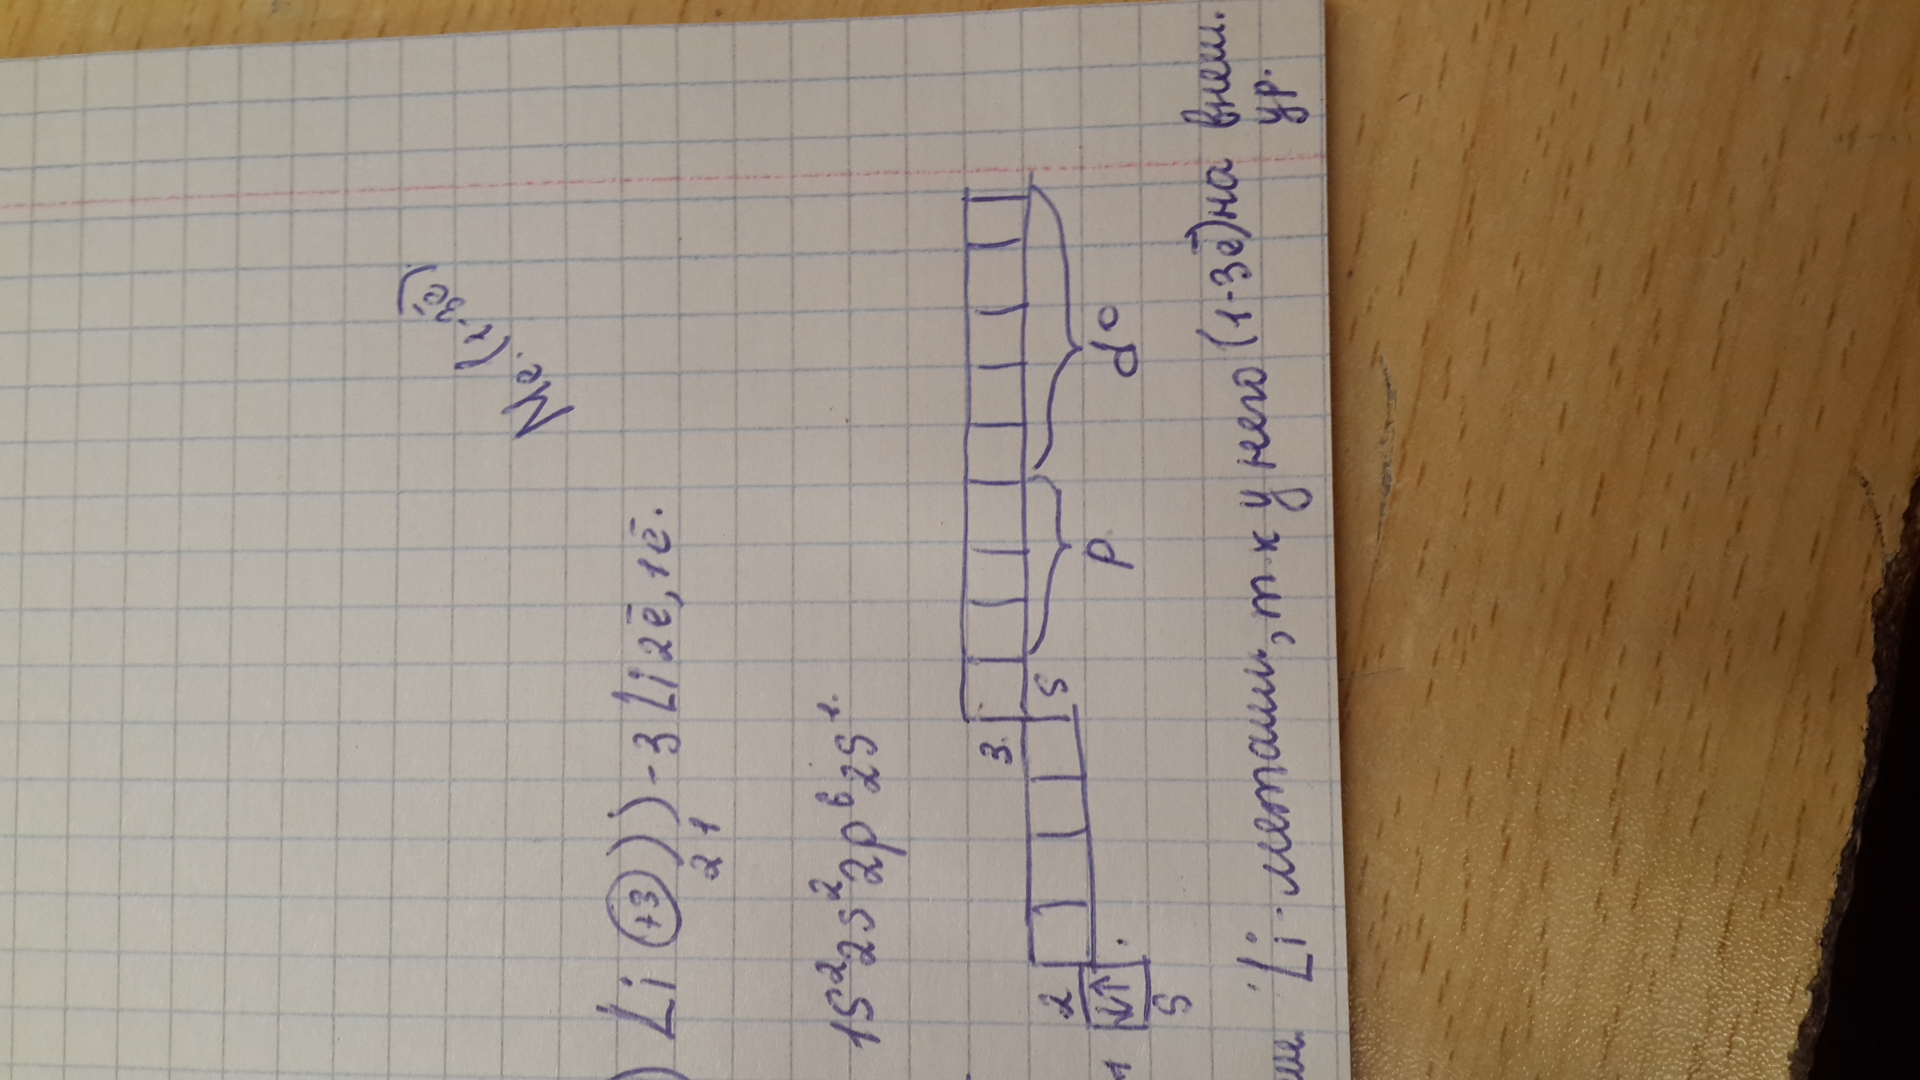 Ме. (1-3ē)
) Li (+3) ) ) - 3 Li 2ē, 1ē.
2 1
1S² 2S² 2p⁶ 2S¹.
3
2
1
S
p
d⁰
S
Li - металл, т к у него (1-3ē) на внеш.
ур.